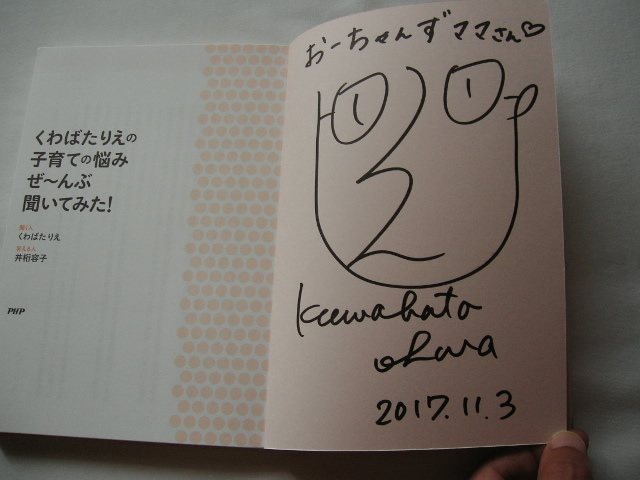 くわばたりえの
子育ての悩み
ぜ〜んぶ
聞いてみた!
聞く人
くわばたりえ
答える人
井桁容子
PHP
おーちゃんずママさん♡
Kuwabata
ohara
2017.11.3